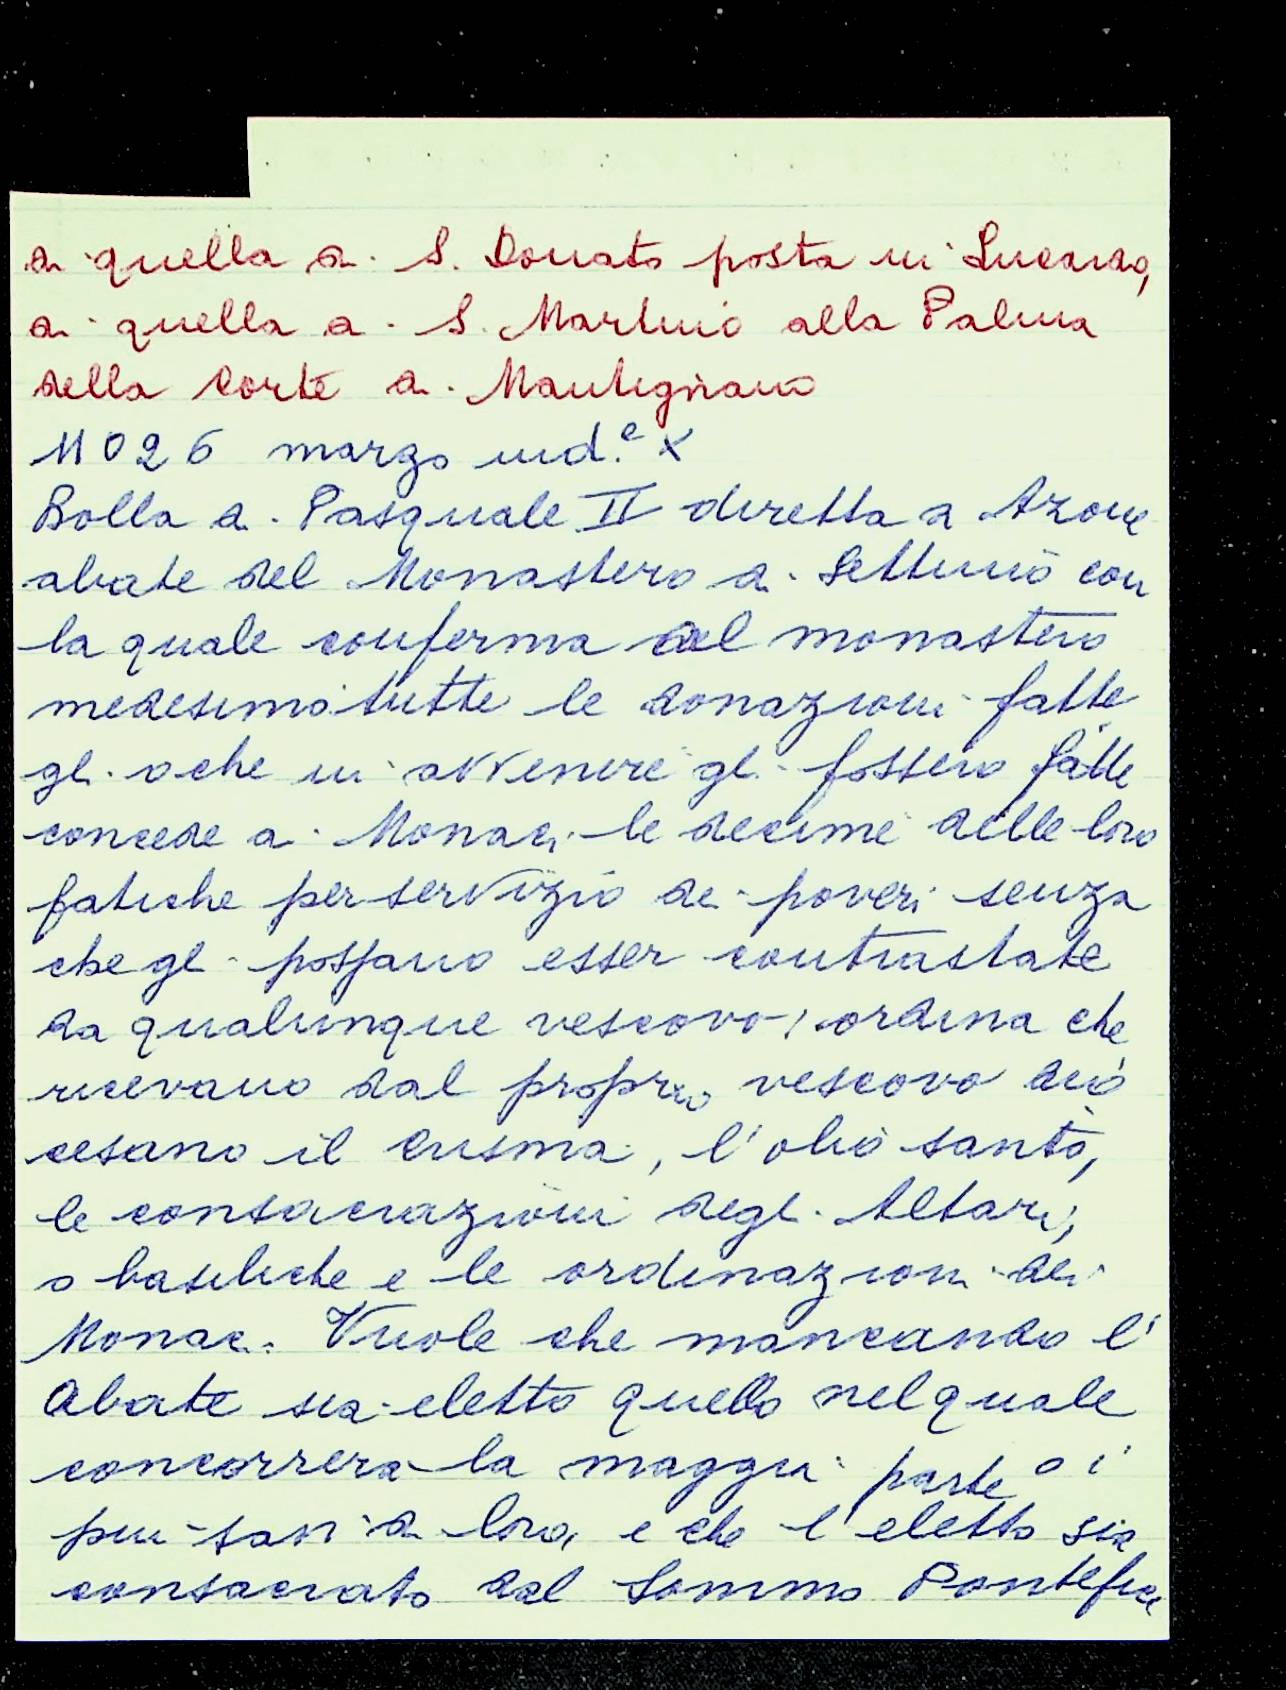 di quella di S. Donato posta in Lucardo,
di quella di S. Martino alla Palma
della Corte di Mantignano
11026 marzo ind.e X
Bolla di Pasquale II diretta a Azone
abate del Monastero di Settimo con
la quale conferma al monastero
medesimo tutte le donazioni fatte
gli o che in avvenire gli fossero fatte
concede ai Monaci le decime delle loro
fatiche per servizio dei poveri senza
che gli possano esser contrastate
da qualunque vescovo, ordina che
ricevano dal proprio vescovo dio
cesano il Crisma, l'olio santo,
le consacrazioni degli Altari,
o basiliche e le ordinazioni dei
Monaci. Vuole che mancando l'
Abate sia eletto quello nel quale
concorrera la maggior parte o i
piu savi di loro, e che l'eletto sia
consacrato dal Sommo Pontefice